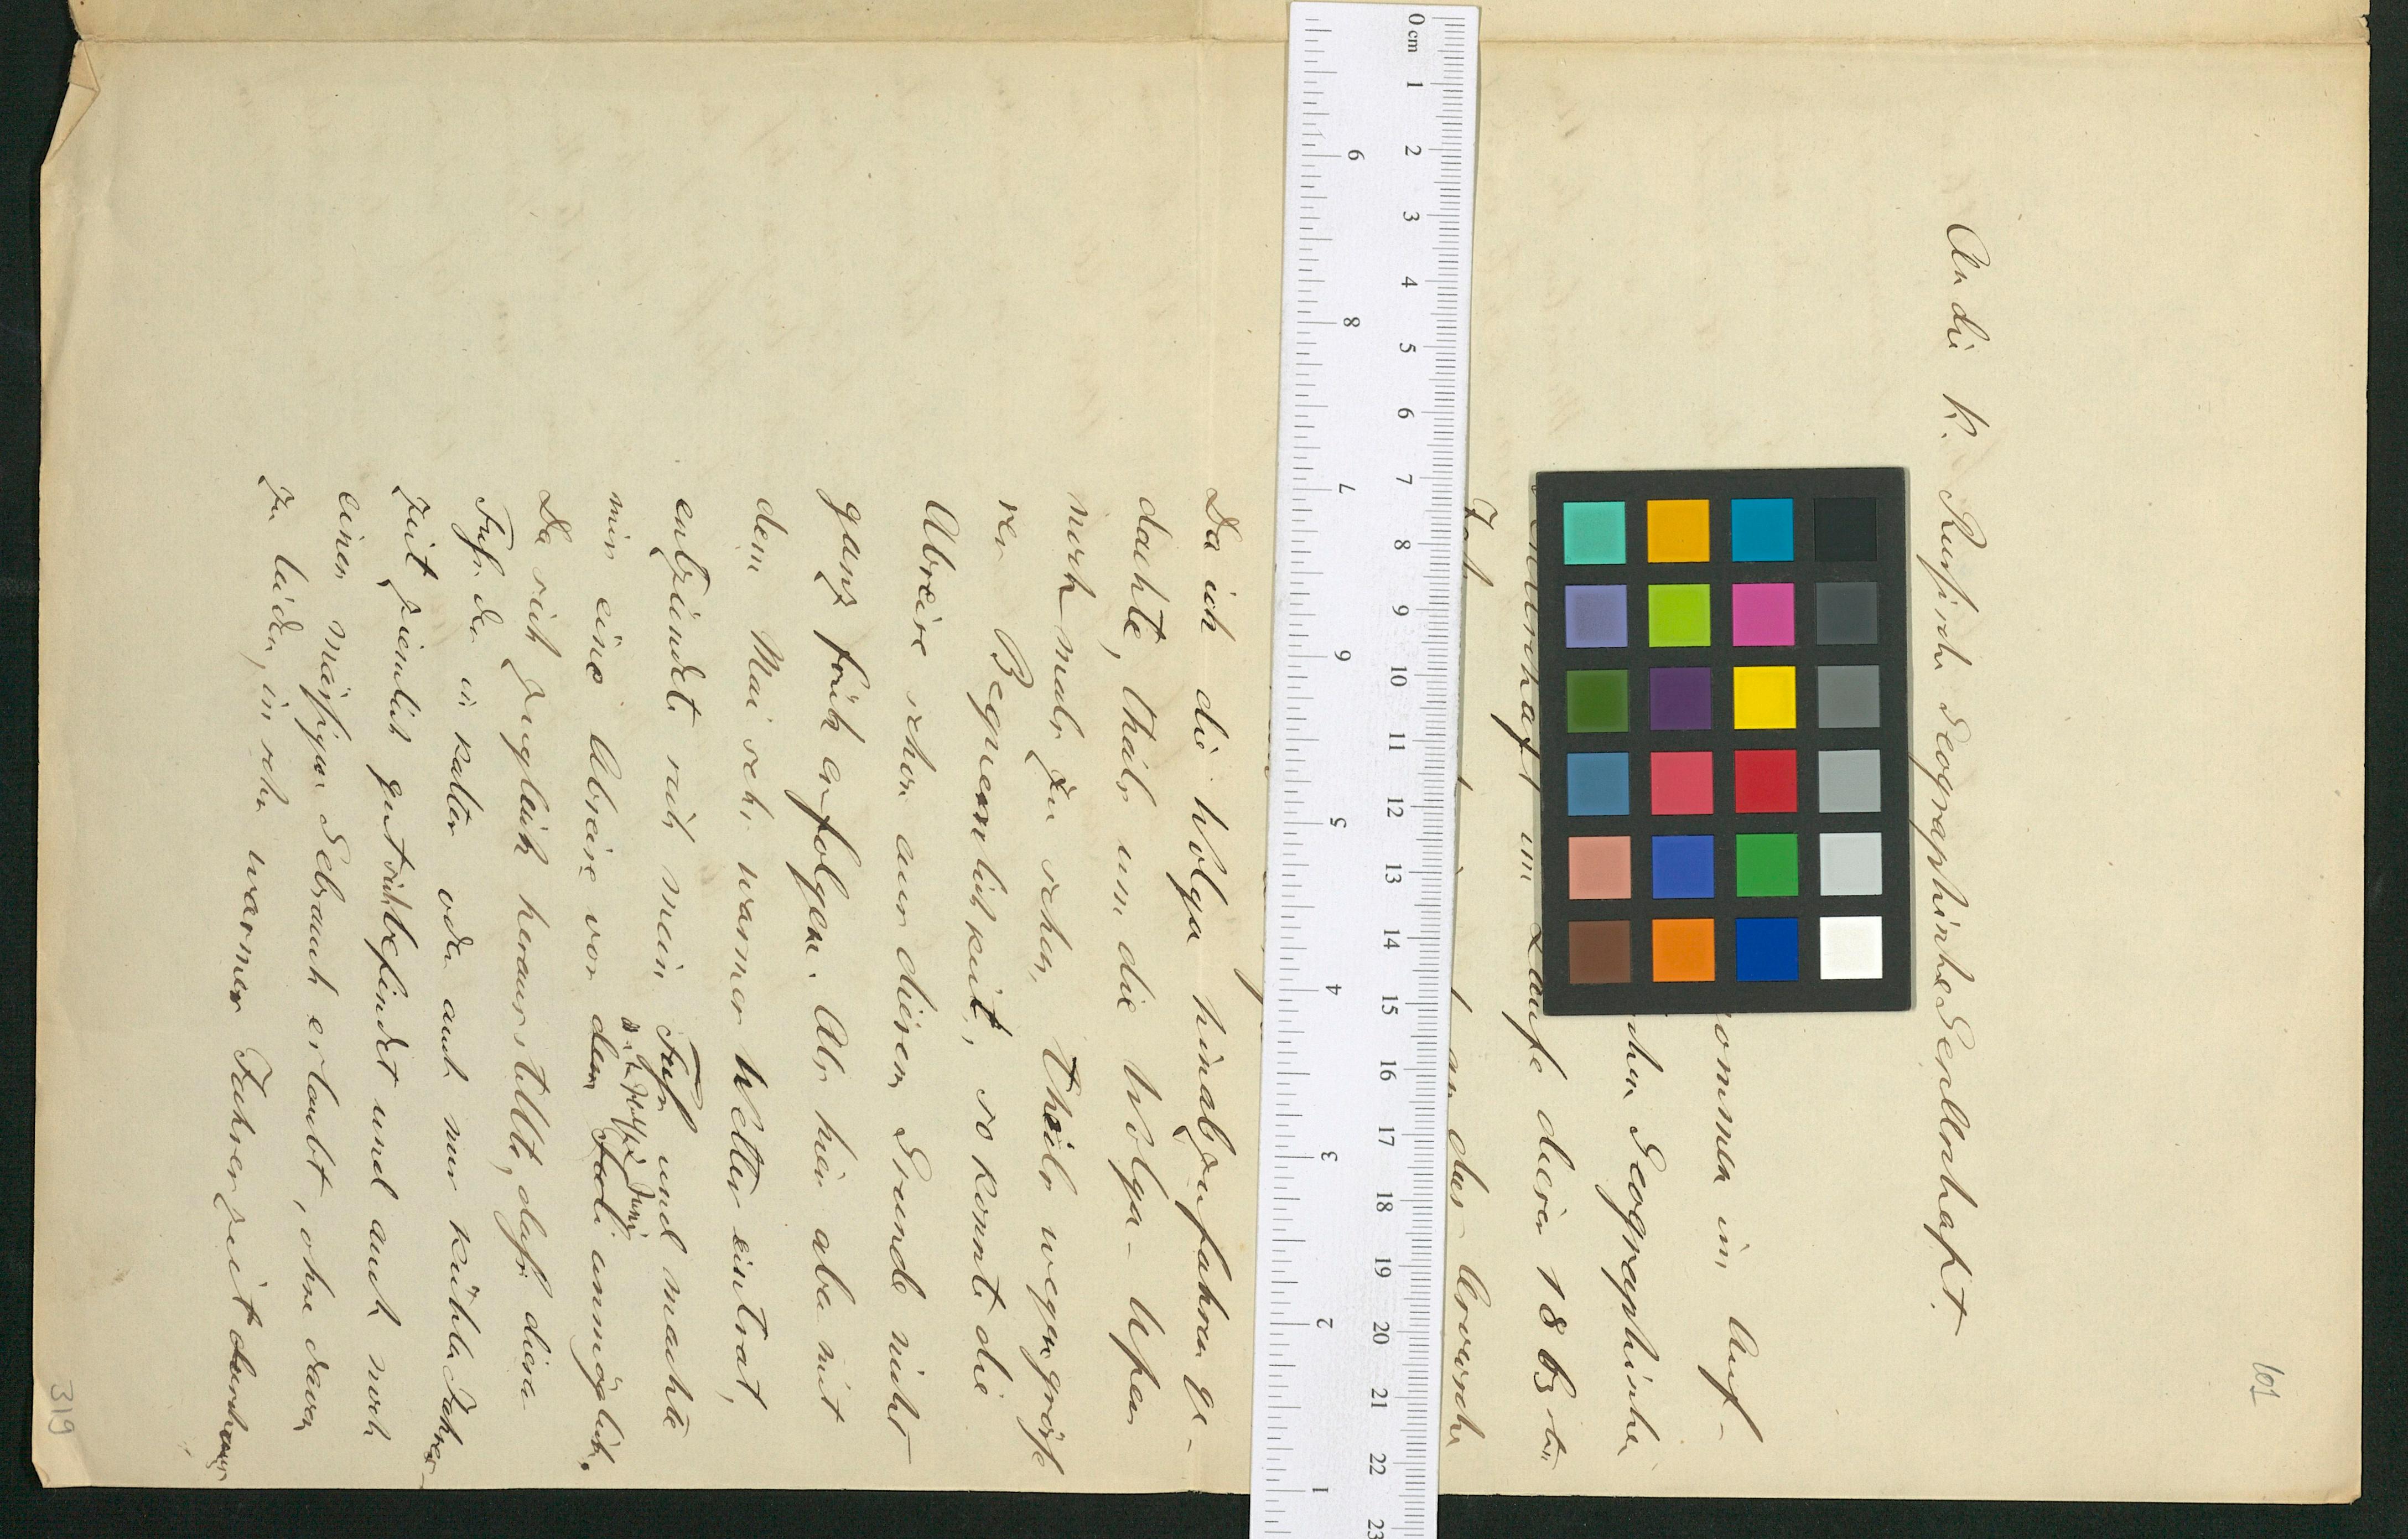 101
An die K. Russische Geographische Gesellschaft.
im Auf-
Geographischen
im Laufe dieses 1863sten
der Asowsche
Da ich die Wolga hinabzufahren ge-
dachte, theils um die Wolga-Ufer
nochmals zu sehen, theils wegen grösse-
rer Bequemlichkeit, so konnte die
Abreise schon aus diesem Grunde nicht
ganz früh erfolgen. Als hier aber mit
dem Mai sehr warmes Wetter eintrat,
entzündete sich mein Fuss und machte
mir eine Abreise vor dem Juli unmöglich.
Juni
Da sich zugleich herausstellte, dass dieser
Fuss, der in kalter oder auch nur kühler Jahres-
zeit ziemlich gut sich befindet und auch noch
einen mässigen Gebrauch erlaubt, ohne davon
zu leiden, in sehr warmer Jahreszeit durchaus
319
0 cm 1 2 3 4 5 6 7 8 9 10 11 12 13 14 15 16 17 18 19 20 21 22 23
9 8 7 6 5 4 3 2 1